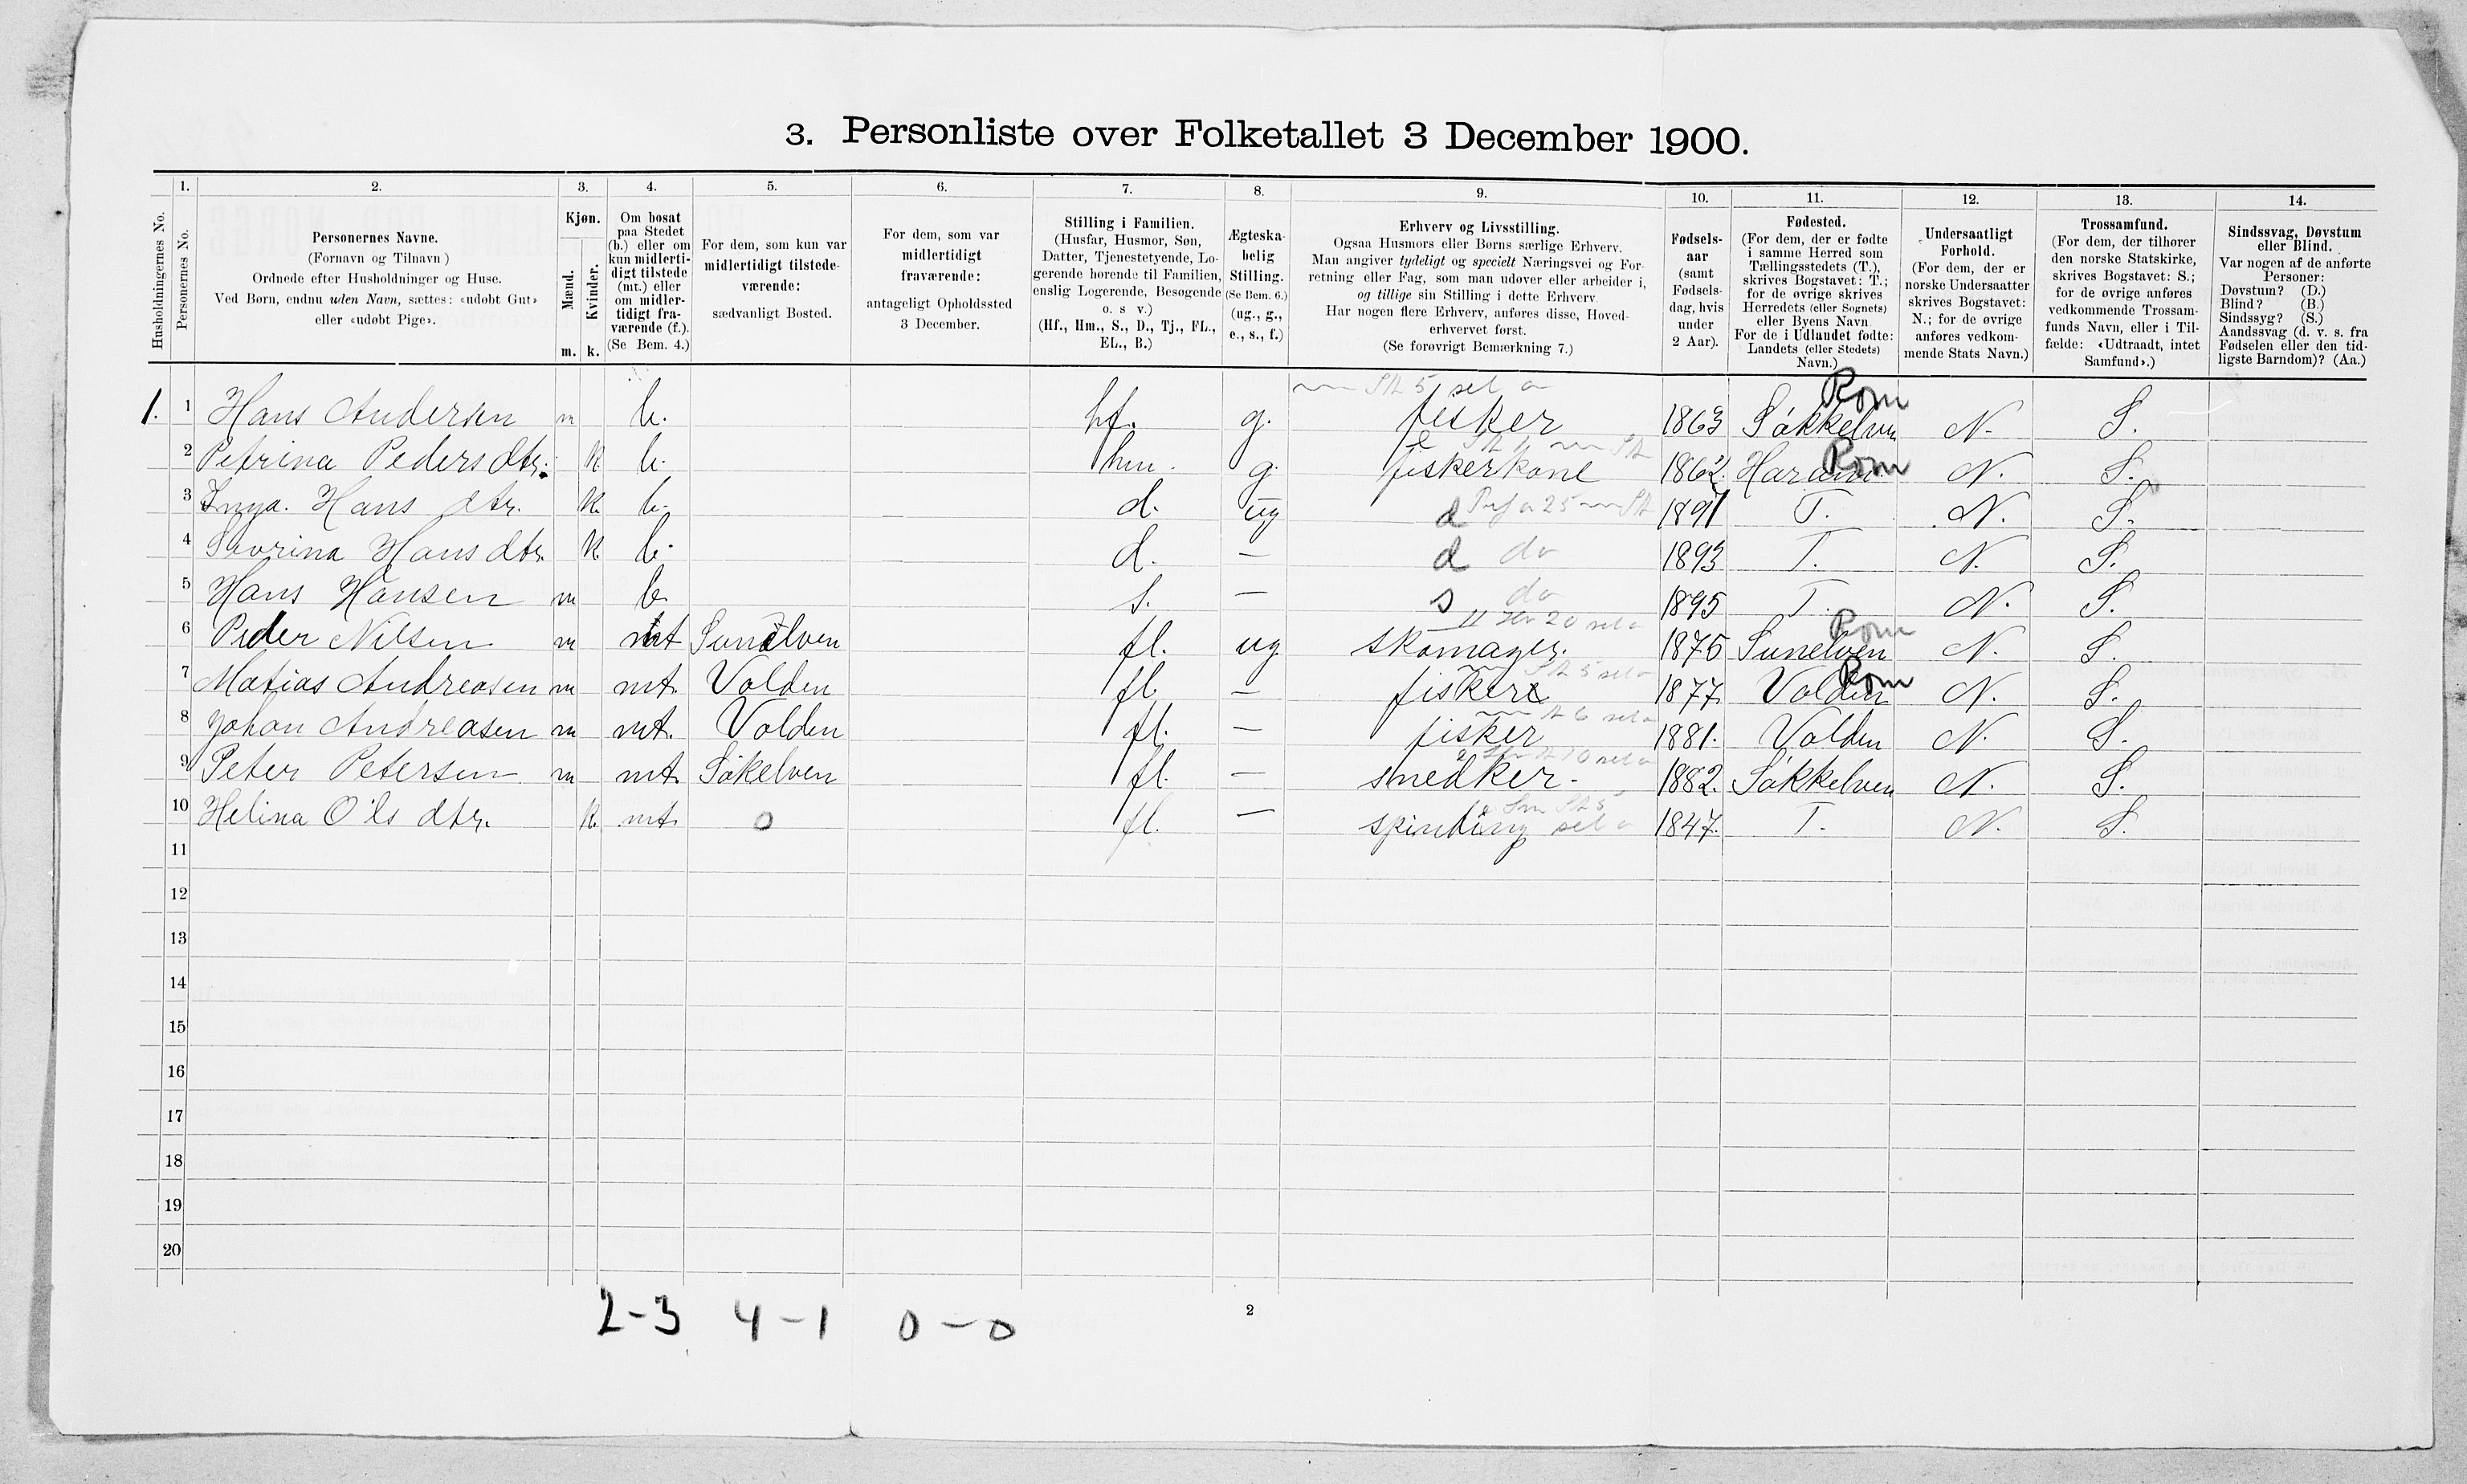 3. Personliste over Folketallet 3 December 1900.
Husholdningernes No.
1.
Personernes No.
2.
Personernes Navne.
(Fornavn og Tilnavn)
Ordnede efter Husholdninger og Huse.
Ved Børn, endnu uden Navn, sættes: «udøbt Gut»
eller «udøbt Pige».
3.
Kjøn.
Mænd.
Kvinder.
m. k.
4.
Om bosat
paa Stedet
(b.) eller om
kun midlerti-
digt tilstede
(mt.) eller
om midler-
tidigt fra-
værende (f.).
(Se Bem. 4.)
5.
For dem, som kun var
midlertidigt tilstede-
værende:
sædvanligt Bosted.
6.
For dem, som var
midlertidigt
fraværende:
antageligt Opholdssted
3 December.
7.
Stilling i Familien.
(Husfar, Husmor, Søn,
Datter, Tjenestetyende, Lo-
gerende hørende til Familien,
enslig Logerende, Besøgende
o. s v.)
(Hf., Hm., S., D., Tj., FL.,
EL., B.)
8.
Ægteska-
belig
Stilling.
(Se Bem. 6.)
(ug., g.,
e., s., f.)
9.
Erhverv og Livsstilling.
Ogsaa Husmors eller Børns særlige Erhverv.
Man angiver tydeligt og specielt Næringsvei og For-
retning eller Fag, som man udøver eller arbeider i,
og tillige sin Stilling i dette Erhverv.
Har nogen flere Erhverv, anføres disse, Hoved-
erhvervet først.
(Se forøvrigt Bemærkning 7.)
10.
Fødsels-
aar
(samt
Fødsels-
dag, hvis
under
2 Aar).
11.
Fødested.
(For dem, der er fødte
i samme Herred som
Tællingsstedets (T.),
skrives Bogstavet: T.;
for de øvrige skrives
Herredets (eller Sognets)
eller Byens Navn.
For de i Udlandet fødte:
Landets (eller Stedets)
Navn.)
12.
Undersaatligt
Forhold.
(For dem, der er
norske Undersaatter
skrives Bogstavet:
N.; for de øvrige
anføres vedkom-
mende Stats Navn.)
13.
Trossamfund.
(For dem, der tilhører
den norske Statskirke,
skrives Bogstavet: S.;
for de øvrige anføres
vedkommende Trossam-
funds Navn, eller i Til-
fælde: «Udtraadt, intet
Samfund».)
14.
Sindssvag, Døvstum
eller Blind.
Var nogen af de anførte
Personer:
Døvstum? (D.)
Blind? (B.)
Sindssyg? (S.)
Aandssvag (d. v. s. fra
Fødselen eller den tid-
ligste Barndom)? (Aa.)
1. 1 Hans Andersen m b. hf. g. fisker 1863 Søkkelven Rom N. S.
2 Petrina Pedersdtr. k b. hm. g. fiskerkone 1862 Haram Rom N. S.
3 Inga. Hans dtr. k b. d. ug d 1891 T. N. S.
4 Sevrina Hans dtr. k b. d. — d do 1893 T. N. S.
5 Hans Hansen m b. s. — s do 1895 T. N. S.
6 Peder Nilsen m mt Sunelven fl. ug skomager. 1875 Sunelven Rom N. S.
7 Matias Andreasen m mt. Volden fl. — fisker 1877. Volden Rom N. S.
8 Johan Andreasen m mt. Volden fl. — fisker 1881. Volden N. S.
9 Peter Petersen m mt. Søkelven fl. — snedker. 1882. Søkkelven N. S.
10 Helina Ols dtr. k. mt. o fl. — spinding 1847. T. N. S.
11
12
13
14
15
16
17
18
19
20
2-3 4-1 0-0
2